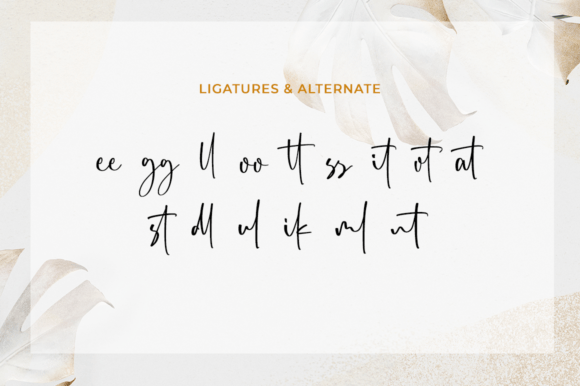 LIGATURES & ALTERNATE
ee gg ll oo tt ss it ot at
st dl ul ik ml nt